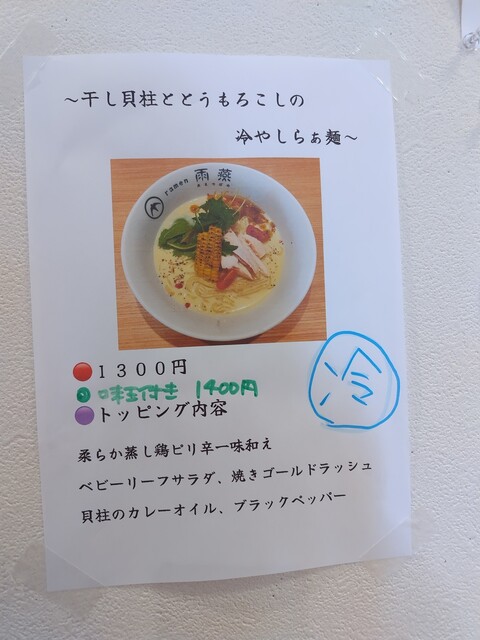 ～干し貝柱ととうもろこしの
冷やしらぁ麺～
ramen 雨燕
🔴１３００円
味玉付き 1400円
🟣トッピング内容
冷
柔らか蒸し鶏ピリ辛一味和え
ベビーリーフサラダ、焼きゴールドラッシュ
貝柱のカレーオイル、ブラックペッパー